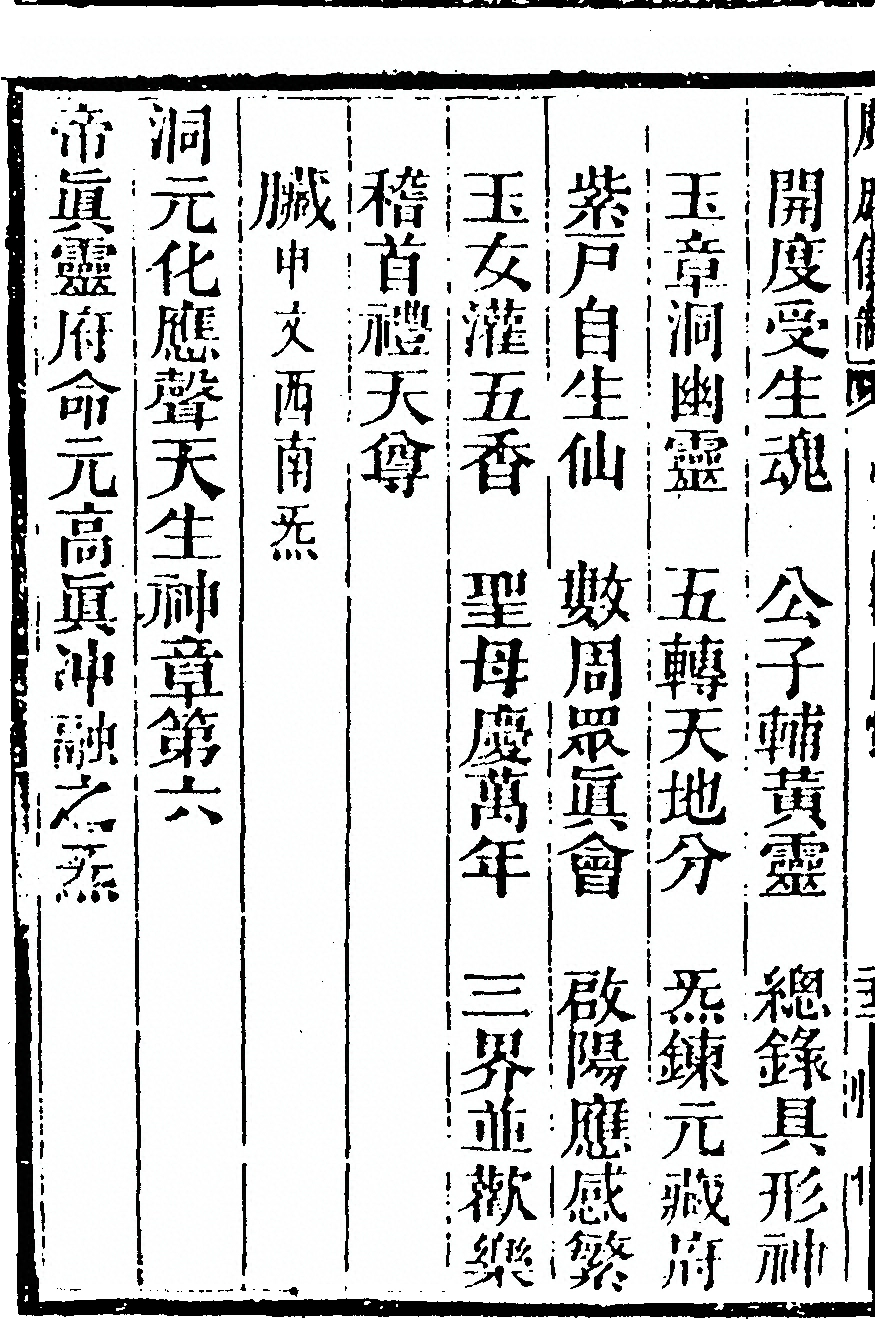 開度受生魂　公子輔黃靈　總錄具形神
玉章洞幽靈　五轉天地分　炁鍊元藏府
紫戸自生仙　數周眾眞會　啟陽應感繁
玉女灌五香　聖母慶萬年　三界並歡樂
稽首禮天尊
臟申文西南炁
洞元化應聲天生神章第六
帝眞靈府命元高眞冲融之炁